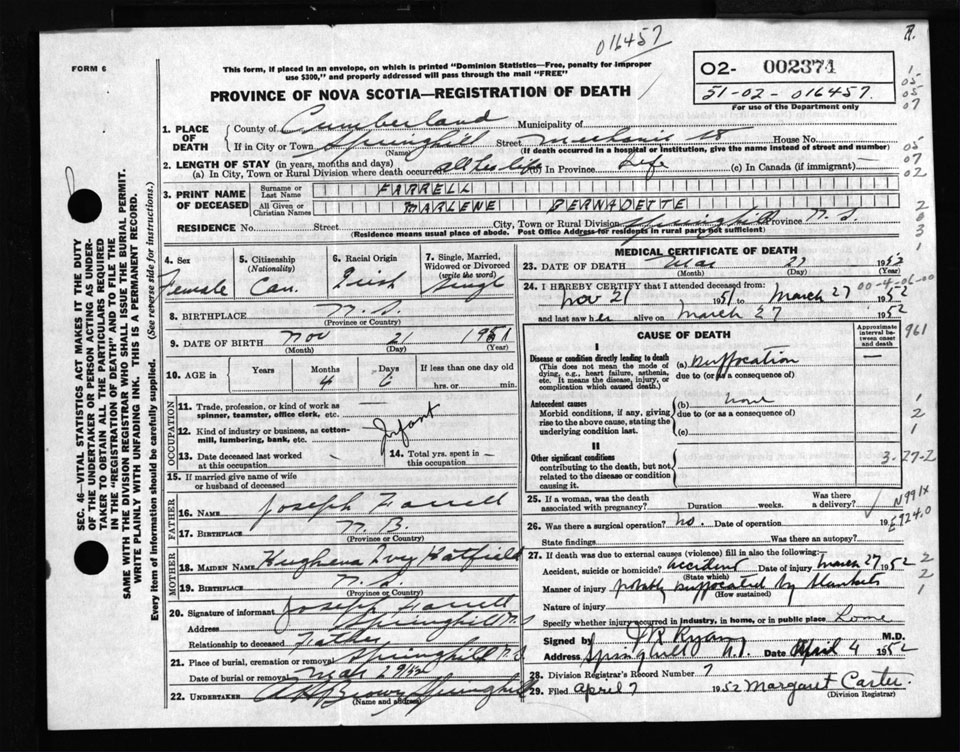 016457
FORM 6
This form, if placed in an envelope, on which is printed "Dominion Statistics—Free, penalty for improper
use $300," and properly addressed will pass through the mail "FREE"
02- 002374
51-02-016457
For use of the Department only
PROVINCE OF NOVA SCOTIA—REGISTRATION OF DEATH
1. PLACE OF DEATH
County of Cumberland Municipality of
If in City or Town Springhill Street House No.
(Name) (If death occurred in a hospital or institution, give the name instead of street and number)
2. LENGTH OF STAY (in years, months and days)
(a) In City, Town or Rural Division where death occurred all her life (b) In Province Life (c) In Canada (if immigrant) —
3. PRINT NAME OF DECEASED
Surname or Last Name FARRELL
All Given or Christian Names MARLENE BERNADETTE
RESIDENCE No. Street City, Town or Rural Division Springhill Province N.S.
(Residence means usual place of abode. Post Office Address for residents in rural parts not sufficient)
4. Sex Female
5. Citizenship (Nationality) Can.
6. Racial Origin Irish
7. Single, Married, Widowed or Divorced (write the word) Single
8. BIRTHPLACE N.S.
(Province or Country)
9. DATE OF BIRTH Nov 21 1951
(Month) (Day) (Year)
10. AGE in Years Months 4 Days 6 If less than one day old
hrs. or min.
OCCUPATION
11. Trade, profession, or kind of work as spinner, teamster, office clerk, etc.
12. Kind of industry or business, as cotton-mill, lumbering, bank, etc.
Infant
13. Date deceased last worked at this occupation —
14. Total yrs. spent in this occupation —
15. If married give name of wife or husband of deceased
FATHER
16. NAME Joseph Farrell
17. BIRTHPLACE N.B.
(Province or Country)
MOTHER
18. MAIDEN NAME Ivy Hatfield
19. BIRTHPLACE N.S.
(Province or Country)
20. Signature of informant Joseph Farrell
Address Springhill N.S
Relationship to deceased Father
21. Place of burial, cremation or removal Springhill N.S
Date of burial or removal Mar 29/52
22. UNDERTAKER Brown Springhill
(Name and address)
MEDICAL CERTIFICATE OF DEATH
23. DATE OF DEATH Mar 27 1952
(Month) (Day) (Year)
24. I HEREBY CERTIFY that I attended deceased from:
Nov 21 1951 to March 27 1952
and last saw her alive on March 27 1952
CAUSE OF DEATH
Approximate interval between onset and death
I
Disease or condition directly leading to death
(This does not mean the mode of dying, e.g., heart failure, asthenia, etc. It means the disease, injury, or complication which caused death.)
(a) Suffocation —
due to (or as a consequence of)
Antecedent causes
Morbid conditions, if any, giving rise to the above cause, stating the underlying condition last.
(b) none
due to (or as a consequence of)
(c)
II
Other significant conditions
contributing to the death, but not related to the disease or condition causing it
25. If a woman, was the death associated with pregnancy? Duration weeks. Was there a delivery?
26. Was there a surgical operation? no. Date of operation 19
State findings Was there an autopsy?
27. If death was due to external causes (violence) fill in also the following:
Accident, suicide or homicide? accident Date of injury March 27 1952
(State which)
Manner of injury probably suffocated by blankets
(How sustained)
Nature of injury
Specify whether injury occurred in industry, in home, or in public place home
Signed by J R Ryan M.D.
Address Springhill N.S. Date April 4 1952
28. Division Registrar's Record Number 7
29. Filed April 7 1952 Margaret Carter.
(Division Registrar)
SEC. 46—VITAL STATISTICS ACT MAKES IT THE DUTY
OF THE UNDERTAKER OR PERSON ACTING AS UNDER-
TAKER TO OBTAIN ALL THE PARTICULARS REQUIRED
IN THE "REGISTRATION OF DEATH" AND TO FILE THE
SAME WITH THE DIVISION REGISTRAR WHO SHALL ISSUE THE BURIAL PERMIT.
WRITE PLAINLY WITH UNFADING INK. THIS IS A PERMANENT RECORD.
Every item of information should be carefully supplied. (See reverse side for instructions.)
1
05
05
07
05
07
02
2
0
3
1
961
1
2
1
3-27-2
N991X
E924.0
2
2
1